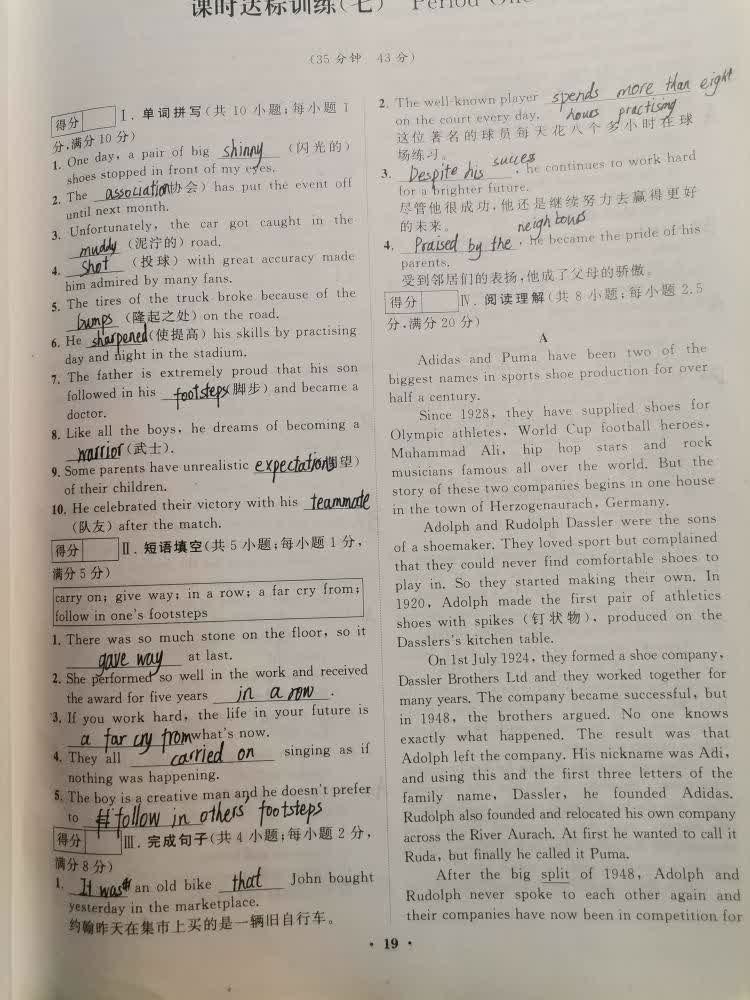 课时达标训练(七) Period One
(35分钟 43分)
得分 Ⅰ. 单词拼写(共10小题;每小题1
分,满分10分)
1. One day, a pair of big shinny (闪光的)
shoes stopped in front of my eyes.
2. The association(协会) has put the event off
until next month.
3. Unfortunately, the car got caught in the
muddy (泥泞的) road.
4. shot (投球) with great accuracy made
him admired by many fans.
5. The tires of the truck broke because of the
bumps (隆起之处) on the road.
6. He sharpened(使提高) his skills by practising
day and night in the stadium.
7. The father is extremely proud that his son
followed in his footsteps(脚步) and became a
doctor.
8. Like all the boys, he dreams of becoming a
warrior(武士).
9. Some parents have unrealistic expectations(期望)
of their children.
10. He celebrated their victory with his teammate
(队友) after the match.
得分 Ⅱ. 短语填空(共5小题;每小题1分,
满分5分)
carry on; give way; in a row; a far cry from;
follow in one's footsteps
1. There was so much stone on the floor, so it
gave way at last.
2. She performed so well in the work and received
the award for five years in a row.
3. If you work hard, the life in your future is
a far cry from what's now.
4. They all carried on singing as if
nothing was happening.
5. The boy is a creative man and he doesn't prefer
to follow in others' footsteps
得分 Ⅲ. 完成句子(共4小题;每小题2分,
满分8分)
1. It was an old bike that John bought
yesterday in the marketplace.
约翰昨天在集市上买的是一辆旧自行车。
2. The well-known player spends more than eight
hours practising
on the court every day.
这位著名的球员每天花八个多小时在球
场练习。
3. Despite his success, he continues to work hard
for a brighter future.
尽管他很成功,他还是继续努力去赢得更好
的未来。
neighbours
4. Praised by the, he became the pride of his
parents.
受到邻居们的表扬,他成了父母的骄傲。
得分 Ⅳ. 阅读理解(共8小题;每小题2.5
分,满分20分)
A
Adidas and Puma have been two of the
biggest names in sports shoe production for over
half a century.
Since 1928, they have supplied shoes for
Olympic athletes, World Cup football heroes,
Muhammad Ali, hip hop stars and rock
musicians famous all over the world. But the
story of these two companies begins in one house
in the town of Herzogenaurach, Germany.
Adolph and Rudolph Dassler were the sons
of a shoemaker. They loved sport but complained
that they could never find comfortable shoes to
play in. So they started making their own. In
1920, Adolph made the first pair of athletics
shoes with spikes (钉状物), produced on the
Dasslers's kitchen table.
On 1st July 1924, they formed a shoe company,
Dassler Brothers Ltd and they worked together for
many years. The company became successful, but
in 1948, the brothers argued. No one knows
exactly what happened. The result was that
Adolph left the company. His nickname was Adi,
and using this and the first three letters of the
family name, Dassler, he founded Adidas.
Rudolph also founded and relocated his own company
across the River Aurach. At first he wanted to call it
Ruda, but finally he called it Puma.
After the big split of 1948, Adolph and
Rudolph never spoke to each other again and
their companies have now been in competition for
• 19 •